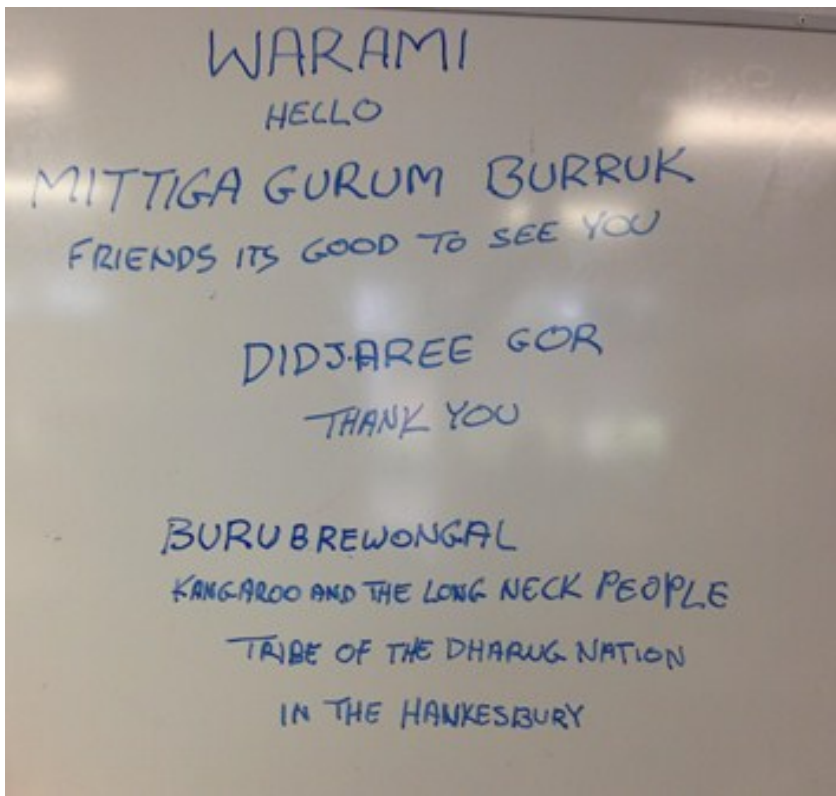 WARAMI
HELLO
MITTIGA GURUM BURRUK
FRIENDS ITS GOOD TO SEE YOU
DIDJAREE GOR
THANK YOU
BURUBREWONGAL
KANGAROO AND THE LONG NECK PEOPLE
TRIBE OF THE DHARUG NATION
IN THE HANKESBURY